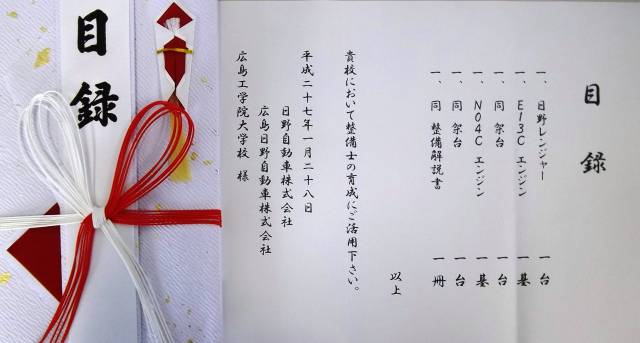 目録
目録
一、日野レンジャー 一台
一、E13C エンジン 一基
一、同 架台 一台
一、N04C エンジン 一基
一、同 架台 一台
一、同 整備解説書 一冊
以上
貴校において整備士の育成にご活用下さい。
平成二十七年一月二十八日
日野自動車株式会社
広島日野自動車株式会社
広島工学院大学校 様